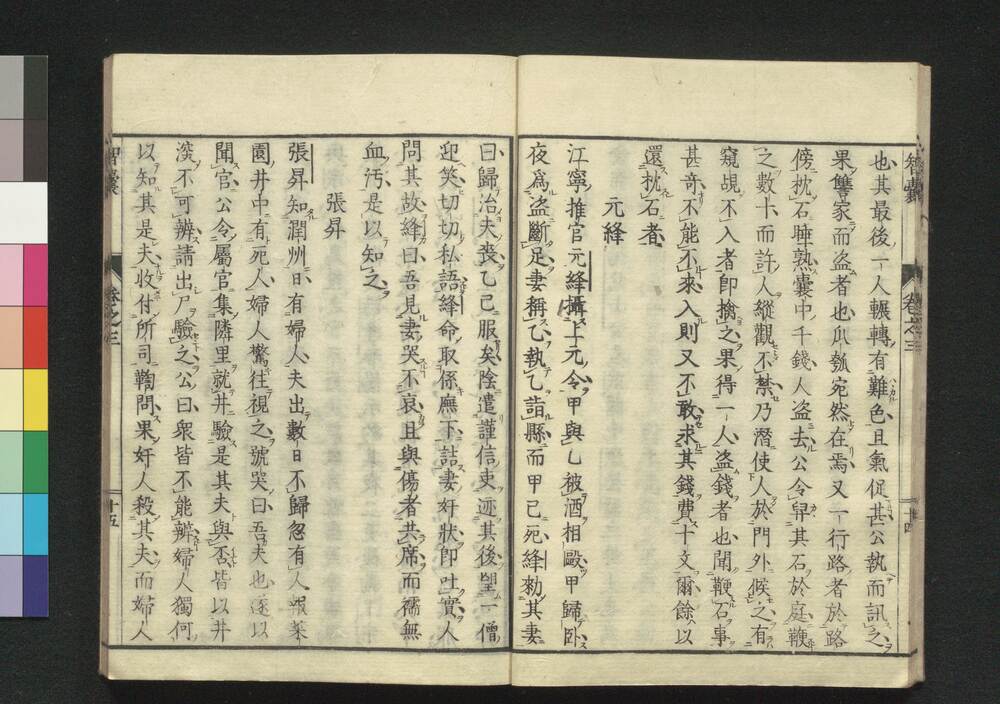 也其最後一人輾轉有難色且氣促甚公執而訊之
果讐家而盜者也瓜瓠宛然在焉又一行路者於路
傍枕石睡熟囊中千錢人盜去公令舁其石於庭鞭
之數十而許人縱觀不禁乃潛使人於門外候之有
窺覘不入者即擒之果得一人盜錢者也聞鞭石事
甚奇不能不來入則又不敢求其錢費十文爾餘以
還枕石者
元絳
江寧推官元絳攝上元令甲與乙被酒相毆甲歸臥
夜爲盜斷足妻稱乙執乙詣縣而甲已死絳勑其妻
曰歸治夫喪乙已服矣陰遣謹信吏迹其後望一僧
迎笑切切私語絳命取係廡下詰妻奸狀即吐實人
問其故絳曰吾見妻哭不哀且與傷者共席而襦無
血汚是以知之
張昇
張昇知潤州日有婦人夫出數日不歸忽有人報菜
園井中有死人婦人驚往視之號哭曰吾夫也遂以
聞官公令屬官集隣里就井驗是其夫與否皆以井
深不可辨請出尸驗之公曰衆皆不能辨婦人獨何
以知其是夫收付所司鞫問果奸人殺其夫而婦人
智囊
卷之三
十四
智囊
卷之三
十五